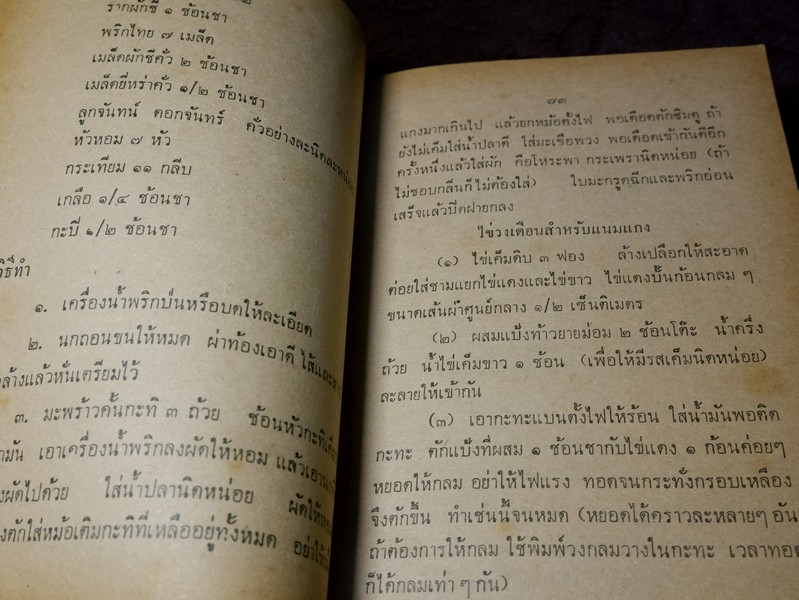 รากผักชี ๑ ช้อนชา
พริกไทย ๗ เมล็ด
เมล็ดผักชีคั่ว ๒ ช้อนชา
เมล็ดยี่หร่าคั่ว ๑/๒ ช้อนชา
ลูกจันทน์ ดอกจันทร์ คั่วอย่างละนิดละหน่อย
หัวหอม ๗ หัว
กระเทียม ๑๑ กลีบ
เกลือ ๑/๔ ช้อนชา
กะปิ ๑/๒ ช้อนชา
วิธีทำ
๑. เครื่องน้ำพริกป่นหรือบดให้ละเอียด
๒. นกถอนขนให้หมด ผ่าท้องเอาดี ไส้และ
ล้างแล้วหั่นเตรียมไว้
๓. มะพร้าวคั้นกะทิ ๓ ถ้วย ช้อนหัวกะทิ
เอาเครื่องน้ำพริกลงผัดให้หอม แล้วเอา
ผัดไปด้วย ใส่น้ำปลานิดหน่อย ผัดให้
ตักใส่หม้อเติมกะทิที่เหลืออยู่ทั้งหมด อย่าให้
๗๓
แกงมากเกินไป แล้วยกหม้อตั้งไฟ พอเดือดตักชิมดู ถ้า
ยังไม่เค็มใส่น้ำปลาดี ใส่มะเขือพวง พอเดือดเข้ากันดีอีก
ครั้งหนึ่งแล้วใส่ผัก คือโหระพา กระเพรานิดหน่อย (ถ้า
ไม่ชอบกลิ่นก็ไม่ต้องใส่) ใบมะกรูดฉีกและพริกอ่อน
เสร็จแล้วปิดฝายกลง
ไข่วงเดือนสำหรับแนมแกง
(๑) ไข่เค็มดิบ ๓ ฟอง ล้างเปลือกให้สะอาด
ต่อยใส่ชามแยกไข่แดงและไข่ขาว ไข่แดงปั้นก้อนกลม ๆ
ขนาดเส้นผ่าศูนย์กลาง ๑/๒ เซ็นติเมตร
(๒) ผสมแป้งท้าวยายม่อม ๒ ช้อนโต๊ะ น้ำครึ่ง
ถ้วย น้ำไข่เค็มขาว ๑ ช้อน (เพื่อให้มีรสเค็มนิดหน่อย)
ละลายให้เข้ากัน
(๓) เอากะทะแบนตั้งไฟให้ร้อน ใส่น้ำมันพอติด
กะทะ ตักแป้งที่ผสม ๑ ช้อนชากับไข่แดง ๑ ก้อนค่อยๆ
หยอดให้กลม อย่าให้ไฟแรง ทอดจนกระทั่งกรอบเหลือง
จึงตักขึ้น ทำเช่นนี้จนหมด (หยอดได้คราวละหลายๆ อัน
ถ้าต้องการให้กลม ใช้พิมพ์วงกลมวางในกะทะ เวลาทอด
ก็ได้กลมเท่า ๆ กัน)